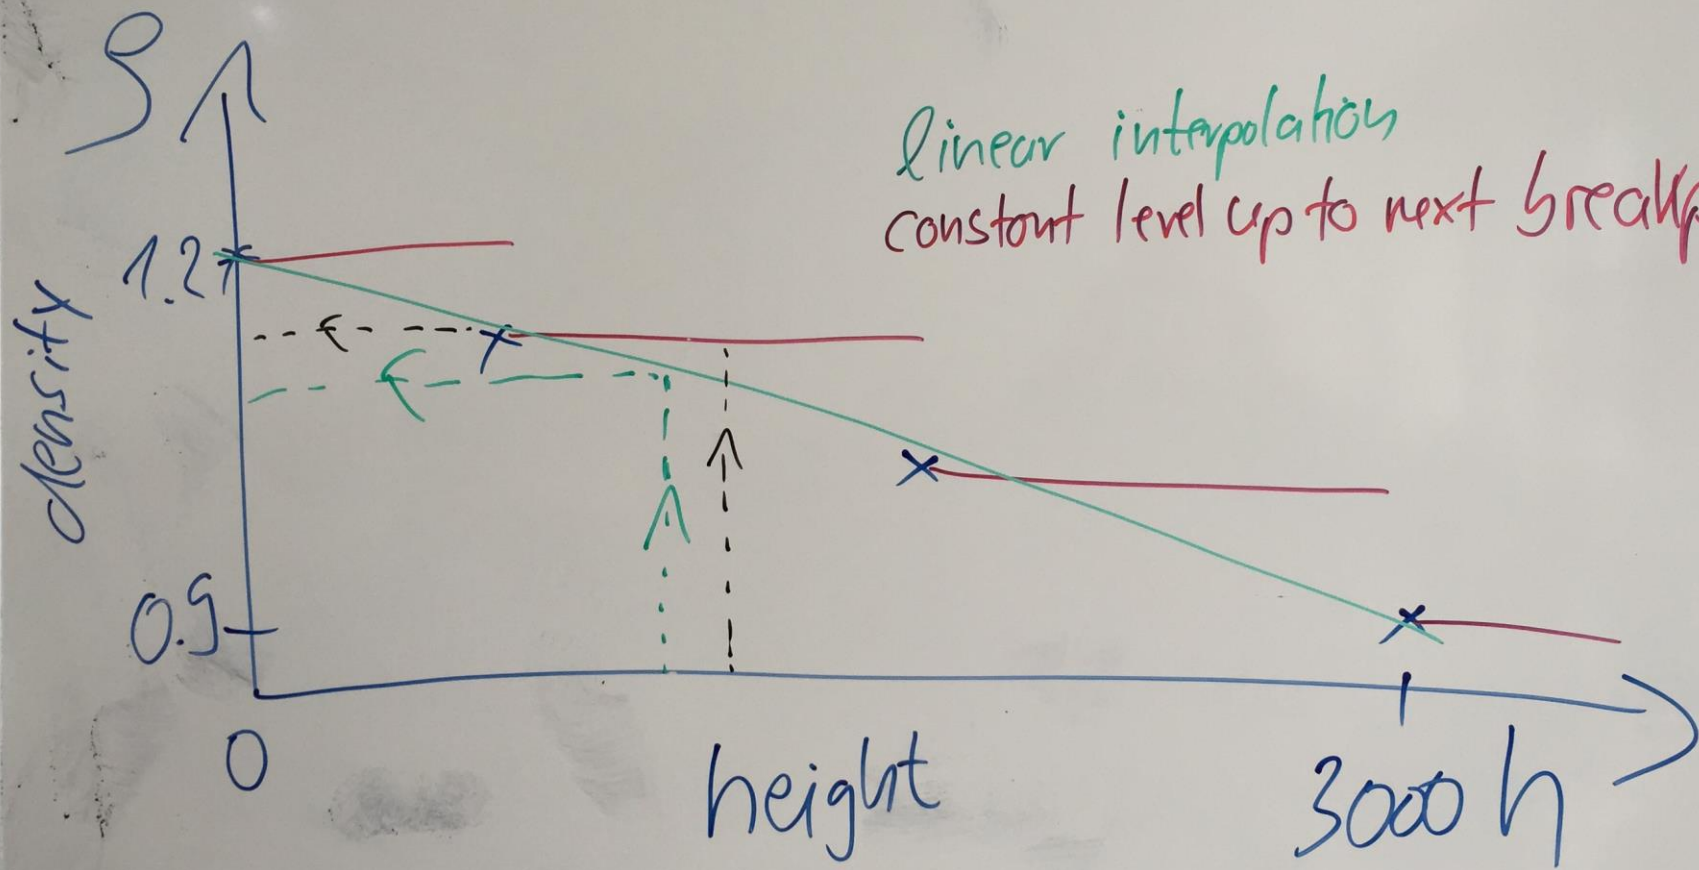 ρ
linear interpolation
constant level up to next break
1.2
density
0.9
0
height
3000 h